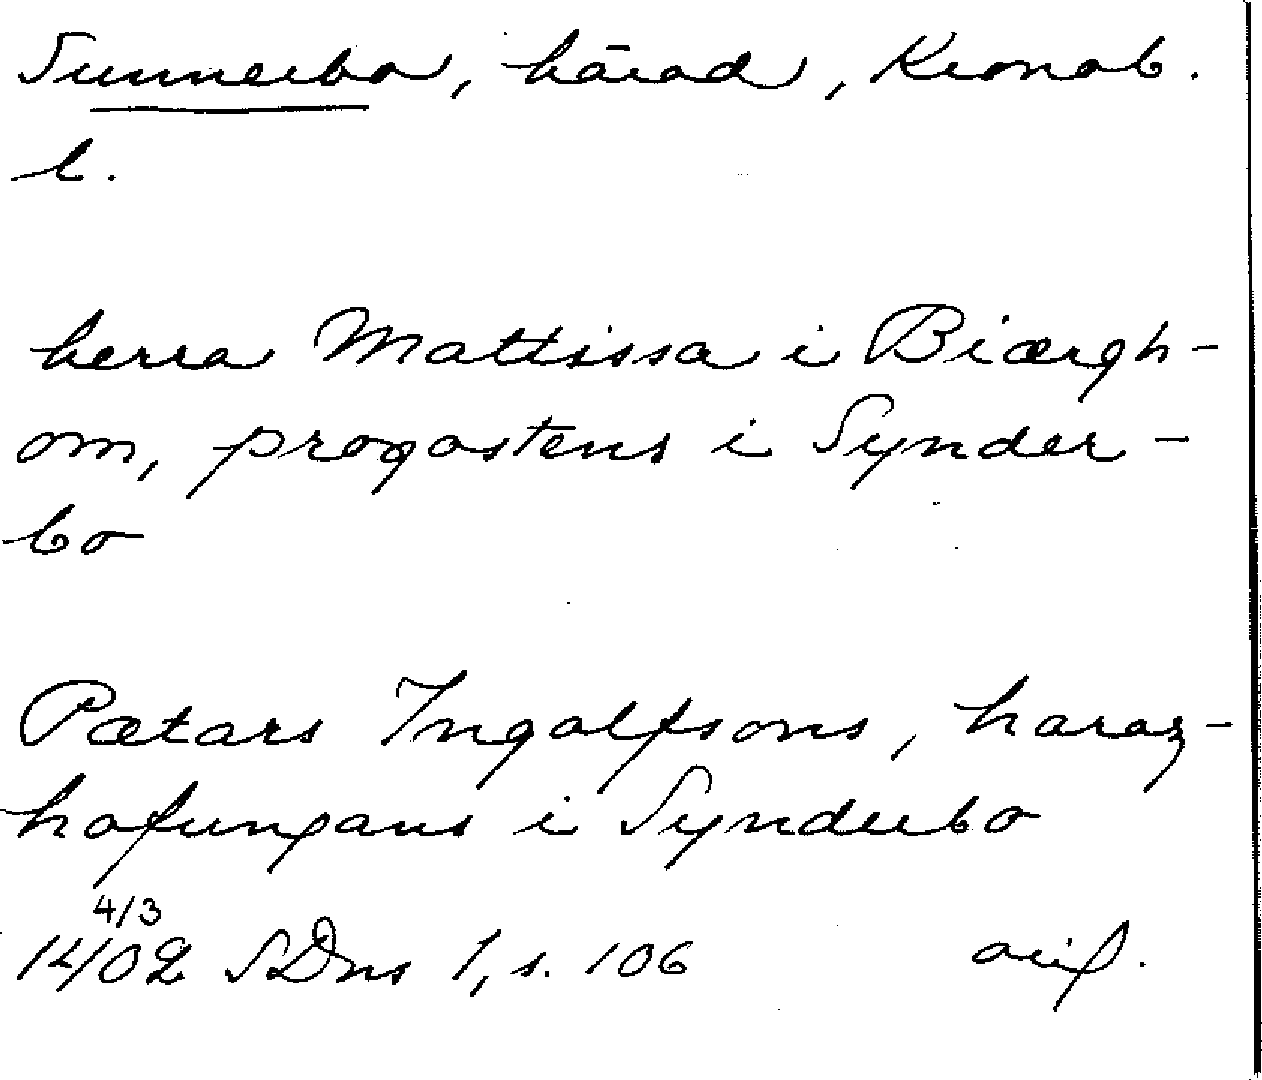 Sunnerbo, härad, Kronob.
l.
herra Mattissa i Biærgh-
om, progastens i Synder-
bo
Pætars Ingalfsons, haraz-
hofungans i Synderbo
4/3
1402 SDns 1, s. 106 orig.